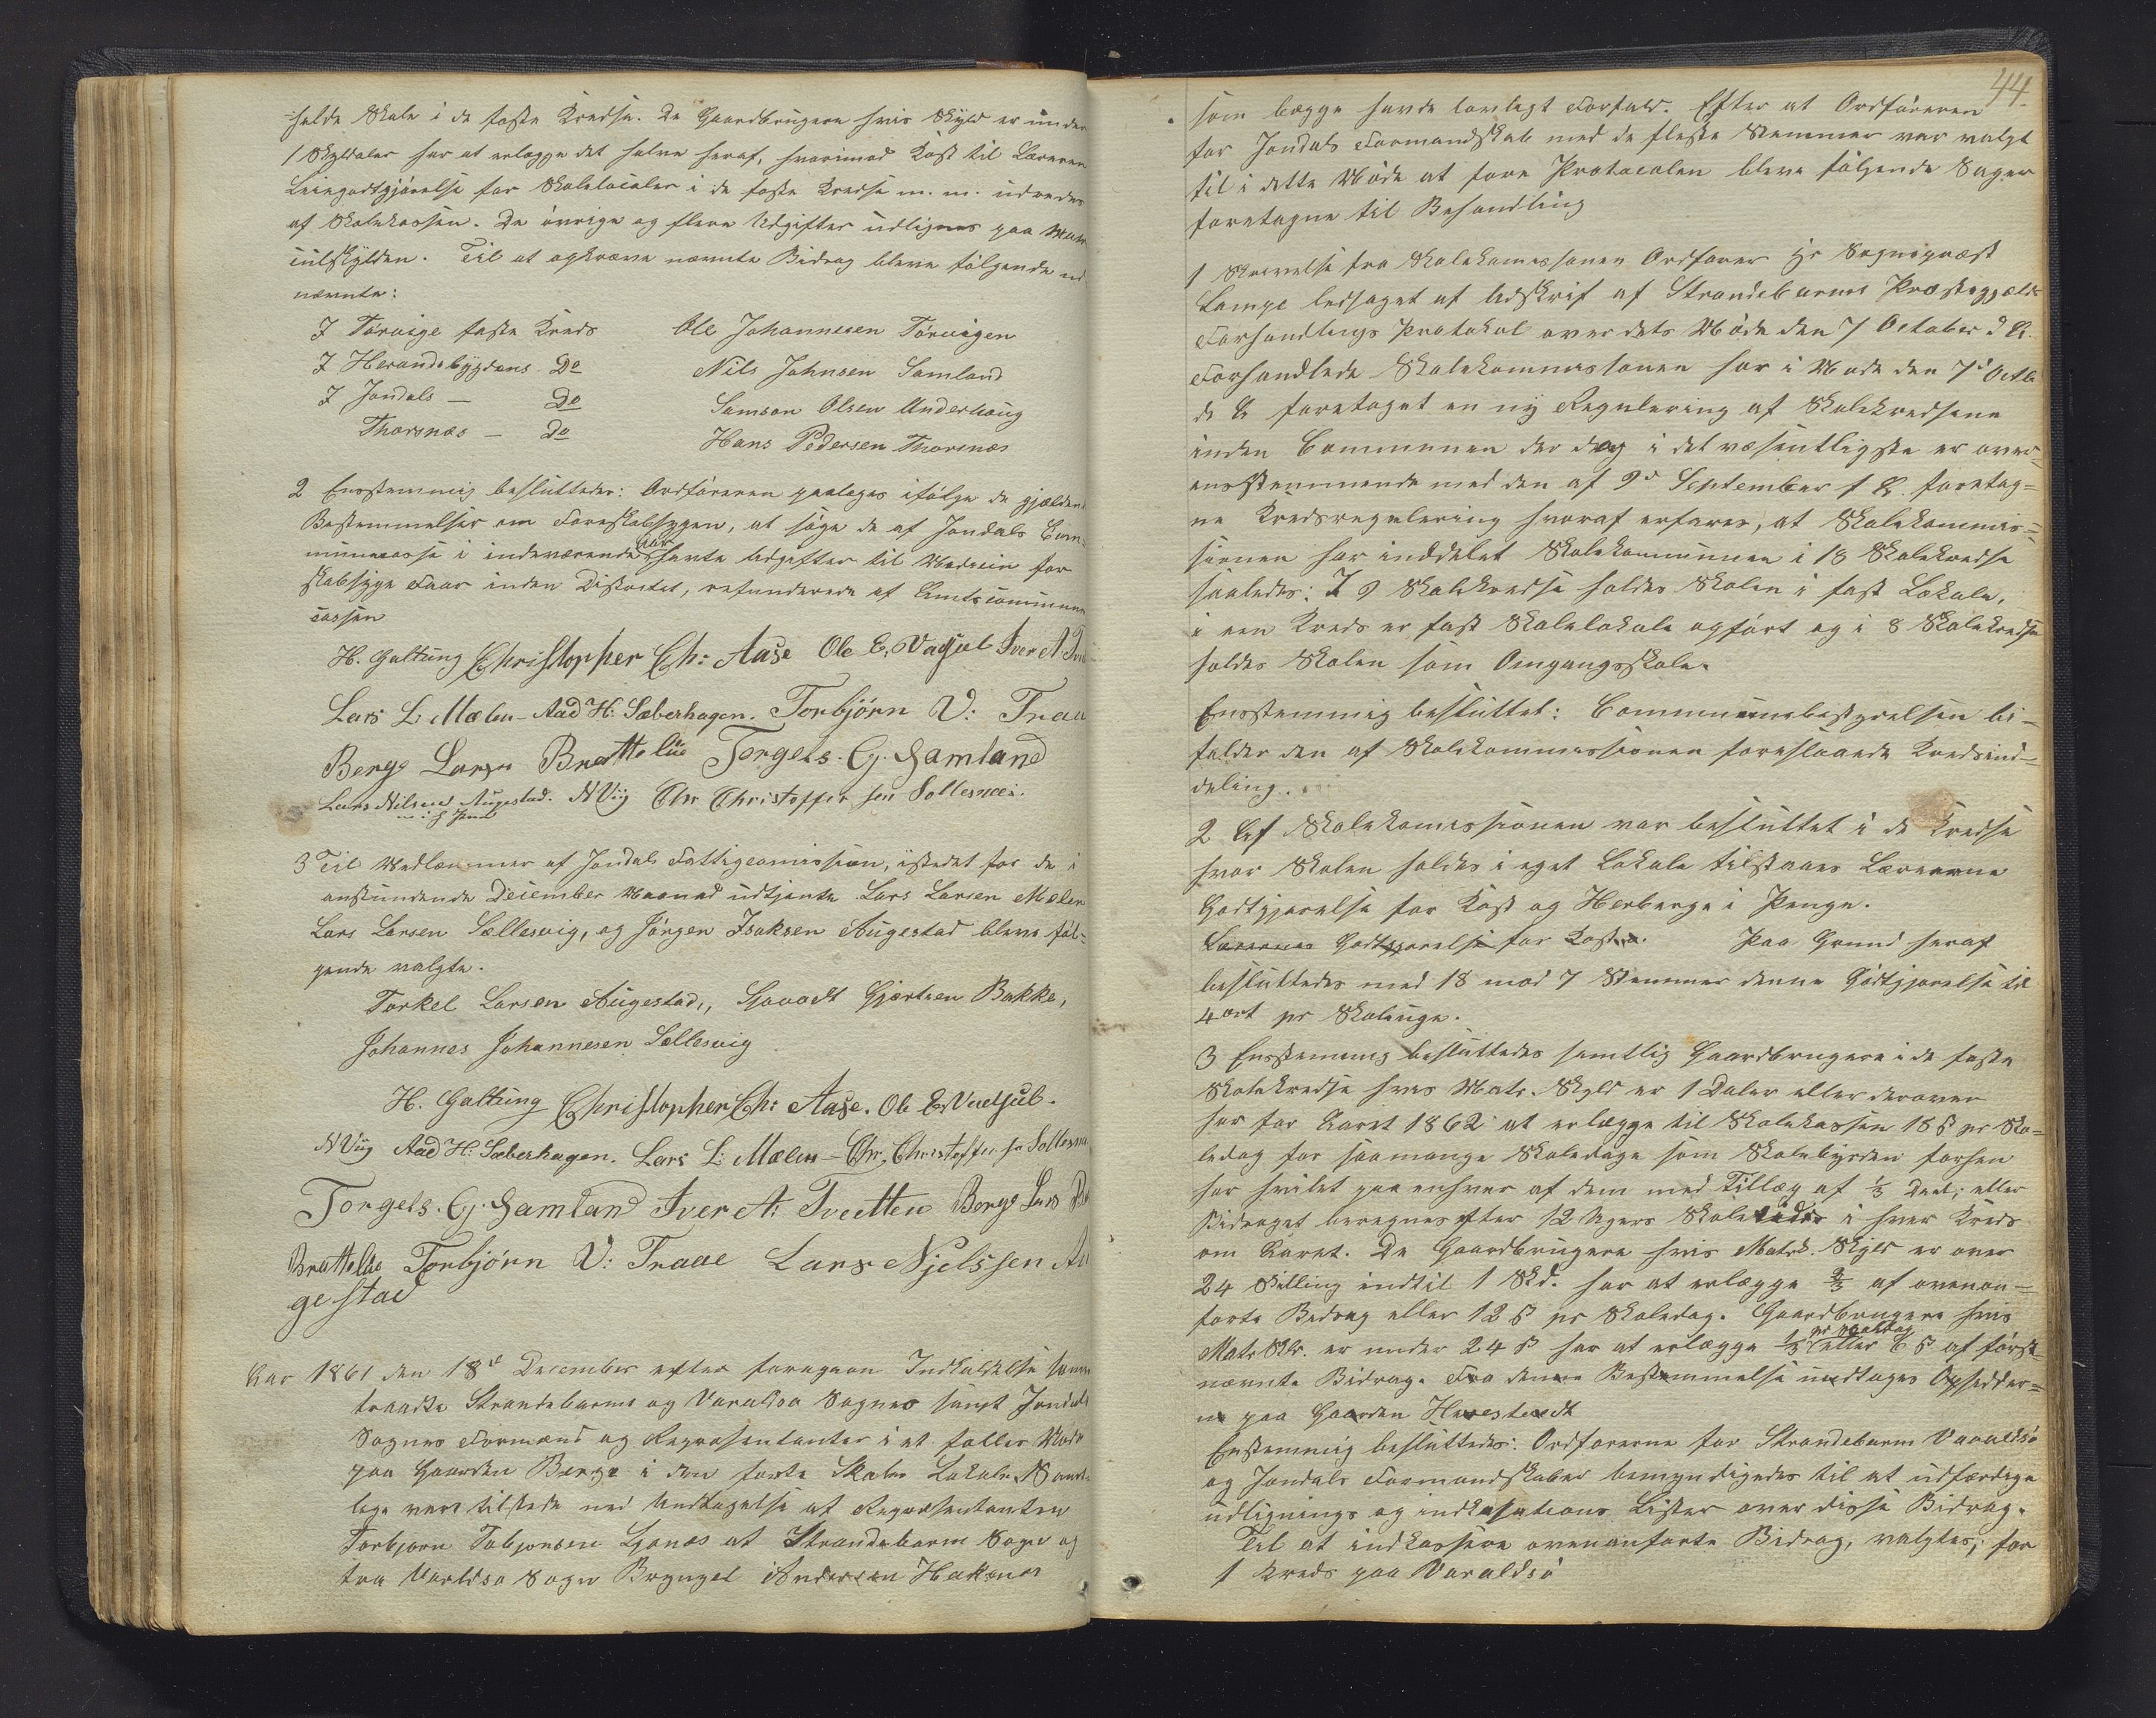 holde Skole i de faste Kredse. De Gaardbrugere hvis Skyld er under
1 Skyldaler har at erlægge det halve heraf, hvorimod Kost til Læreren
Leiegodtgjörelse for Skolelocaler i de faste Kredse m. m. udredes
af Skolekassen. De övrige og flere Udgifter udlignes paa Matri
culskylden. Til at opkræve nævnte Bidrag bleve fölgende ud
nævnte:
I Törvige faste Kreds Ole Johannesen Törvigen
I Herandsbygdens Do Nils Johnsen Samland
I Jondals — Do Samson Olsen Underhaug
Thorsnæs — do Hans Pedersen Thorsnæs
2 Enstemmig besluttedes: Ordföreren paalægges ifölge de gjældend
Bestemmelser om Foreskabsygen, at söge de af Jondals Com-
munecasse i indeværende Aar havte Udgifter til Medicin for
skabsyge Faar inden Distrctet, refunderede af Amtscommune
cassen
H. Galtung Christopher Ch: Aase Ole E. Vaqsel Iver A. Tve
Lars L. Mælen - Aad H: Sæberhagen. Torbjörn V: Traa
Berge Larsen Brattelie Torgels. G. Samland
Lars Nilsens Augestad. N Viig Chr Christoffer sen Sollesnæs.
m. i. P. Pend
3 Til Medlemmer af Jondals Fattigcomission, istedet for de i
anstundende December Maaned udtjente Lars Larsen Mælen
Lars Larsen Sællesvig, og Jörgen Isaksen Augestad bleve föl-
gende valgte.
Torkel Larsen Augestad, Gjærtsen Bakke,
Johannes Johannesen Sællesvig
H. Galtung Christopher Ch: Aase. Ole E. Vaqsel.
N Viig Aad H: Sæberhagen. Lars L: Mælen - Chr, Christoffer sen Sollesnæ
Torgels. G. Samland Iver A: Tveitten Berge Lars
Brattelie Torbjörn V: Traae Lars Njelssen Au
gestad
Aar 1861 den 18d December efter foregaaen Indkaldelse sam
traadte Strandebarms og Varaldsö Sognes samt Jondals
Sognes Formænd og Repræsentanter i et fælles Möde
paa Gaarden Berge i den faste Skoles Lokale. Samt-
lige vare tilstede med Undtagelse af Repræsentanten
Torbjorn Tobjornsen Lynæs af Strandebarm Sogn og
fra Varldsö Sogn Brynyel Andersen Hakenes
44.
som begge havde lovligt Forfald. Efter at Ordföreren
for Jondals Formandskab med de fleste Stemmer var valgt
til i dette Möde at före Protocolen bleve fölgende Sager
foretagne til Behandling
1 Skrivelse fra Skolekomissionen Ordförer Hr Sognepræst
Lampe ledsaget af Udskrif af Strandebarms Præstegjælds
Forhandlings Protokol over dets Möde den 7 October d A.
Forhandlede Skolekommissionen har i Möde den 7d Octb
d A foretaget en ny Regulering af Skolekredsene
inden Communen der dog i det væsentligste er over-
enstemmende med den af 9d September f A. foretag-
ne Kredsregulering hvoraf erfares, at Skolekommis-
sionen har inddelet Skolekommunen i 18 Skolekredse
saaledes: I 9 Skolekredse holdes Skolen i fast Lokale,
i een Kreds er fast Skolelokale opfört og i 8 Skolekredse
holdes Skolen som Omgangsskole.
Enstemmig besluttet: Communebestyrelsen bi-
falder den af Skolekommissionen foreslaaede Kredsind-
deling.
2. Af Skolekomissionen var besluttet i de Kredse
hvor Skolen holdes i eget Lokale tilstaaes Lærerene
Godtgjorelse for Kost og Herberge i Penge.
Lærernes Godtgjorelse for Kost. Paa Grund heraf
besluttedes med 18 mod 7 Stemmer denne Godtgjorelse til
4 ort pr Skoleuge.
3 Enstemmig besluttedes samtlig Gaardbrugere i de faste
Skolekredse hvis Matr. Skyld er 1 Daler eller derover
har for Aaret 1862 at erlægge til Skolekassen 18 ß pr Sko-
ledag for saamange Skoledage som Skolebyrden forhen
har hvilet paa enhver af dem med Tillæg af 1/3 Deel; eller
Bidraget beregnes efter 12 Ugers Skoletider i hver Kreds
om Aaret. De Gaardbrugere hvis Matrk. Skyld er over
24 Skilling indtil 1 Skd. har at erlægge 2/3 af ovenan-
forte Bidrag eller 12 ß pr Skoledag. Gaardbrugere hvis
Matr Skr. er under 24 ß har at erlægge 1/3 eller 6 ß pr Skoledag af först-
nævnte Bidrag. Fra denne Bestemmelse undtages Opsidder-
ne paa Gaarden Herestvedt
Enstemmig besluttedes: Ordforerne for Strandebarm Varaldsö
og Jondals Formandskaber bemyndigedes til at udfærdige
udlignings og indkasations Lister over disse Bidrag.
Til at indkassere ovenanforte Bidrag, valgtes, for
1 Kreds paa Varaldsö